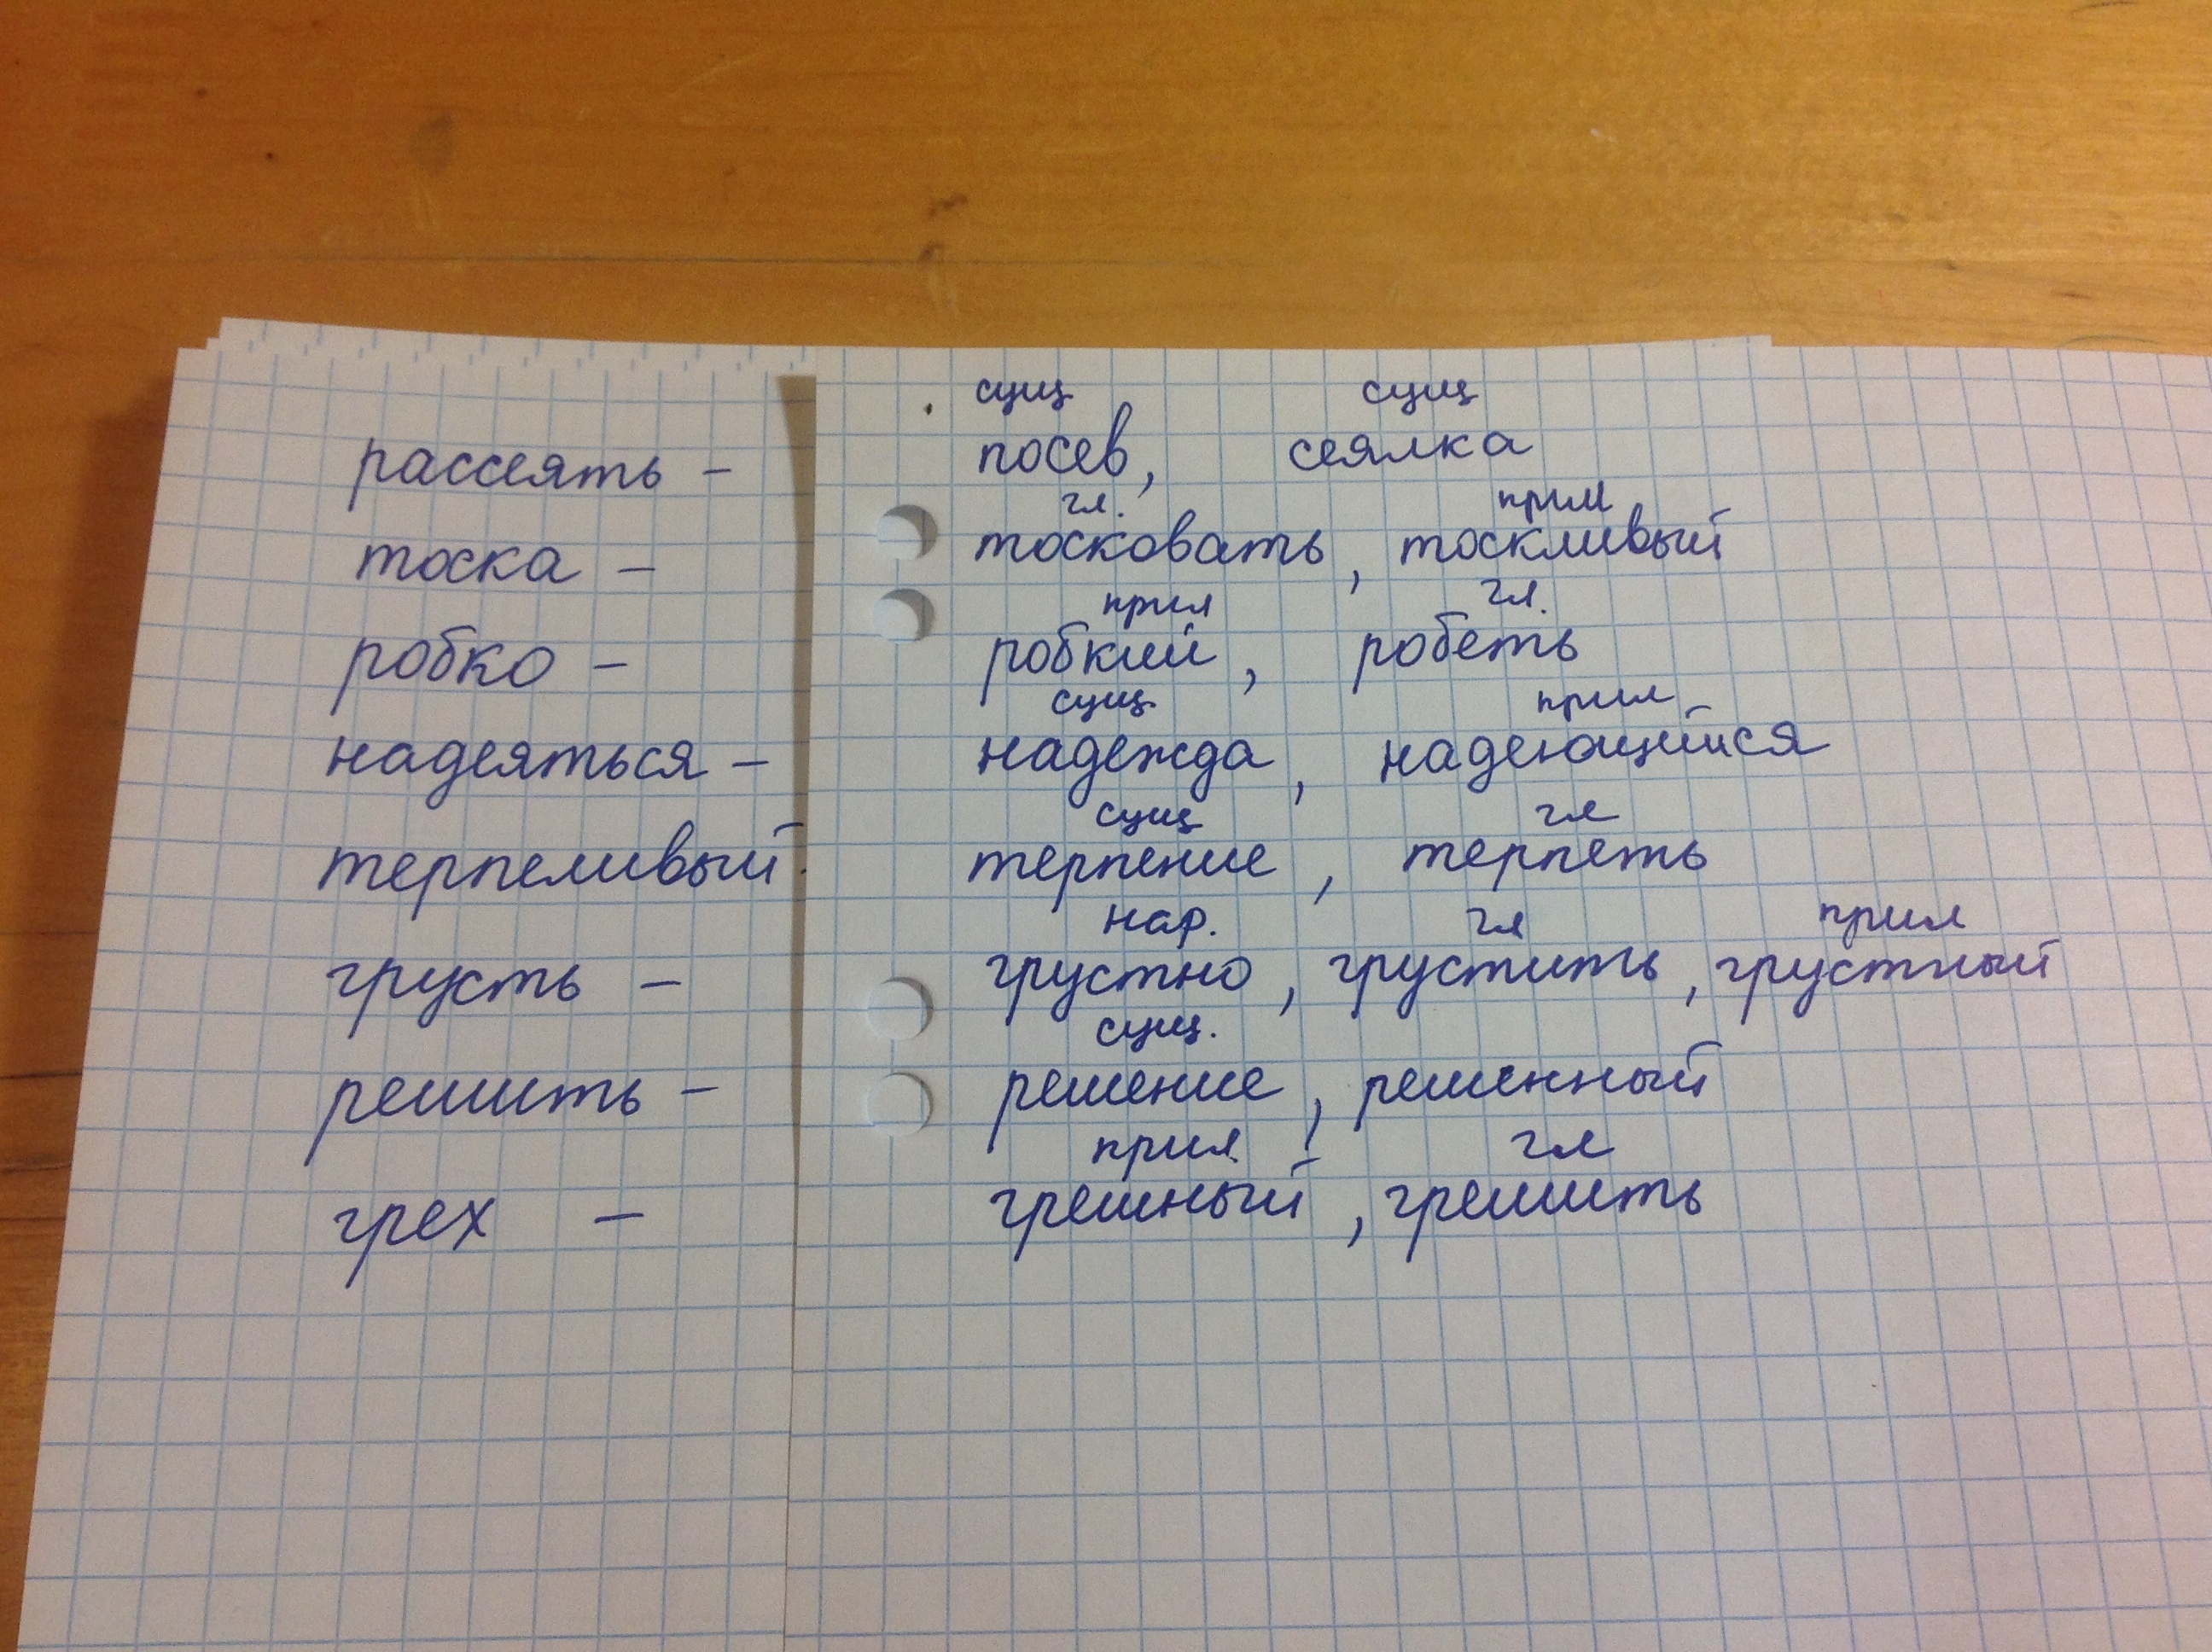 сущ сущ
рассеять – посев, сеялка
гл. прил
тоска – тосковать, тоскливый
прил гл.
робко – робкий, робеть
сущ. прил
надеяться – надежда, надеющийся
сущ гл
терпеливый - терпение, терпеть
нар. гл прил
грусть – грустно, грустить, грустный
сущ.
решить – решение, решенный
прил гл
грех – грешный, грешить